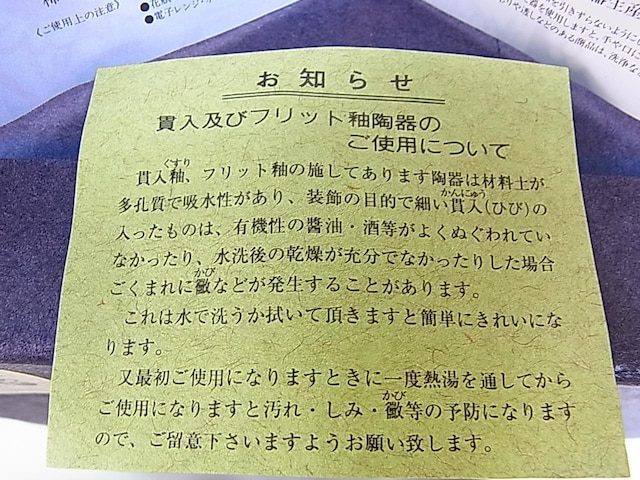 〈ご使用上の注意〉
お知らせ
貫入及びフリット釉陶器の
ご使用について
くすり
貫入釉、フリット釉の施してあります陶器は材料土が
多孔質で吸水性があり、装飾の目的で細い貫入(ひび)の
かんにゅう
入ったものは、有機性の醬油・酒等がよくぬぐわれてい
なかったり、水洗後の乾燥が充分でなかったりした場合
かび
ごくまれに黴などが発生することがあります。
これは水で洗うか拭いて頂きますと簡単にきれいにな
ります。
又最初ご使用になりますときに一度熱湯を通してから
かび
ご使用になりますと汚れ・しみ・黴等の予防になります
ので、ご留意下さいますようお願い致します。